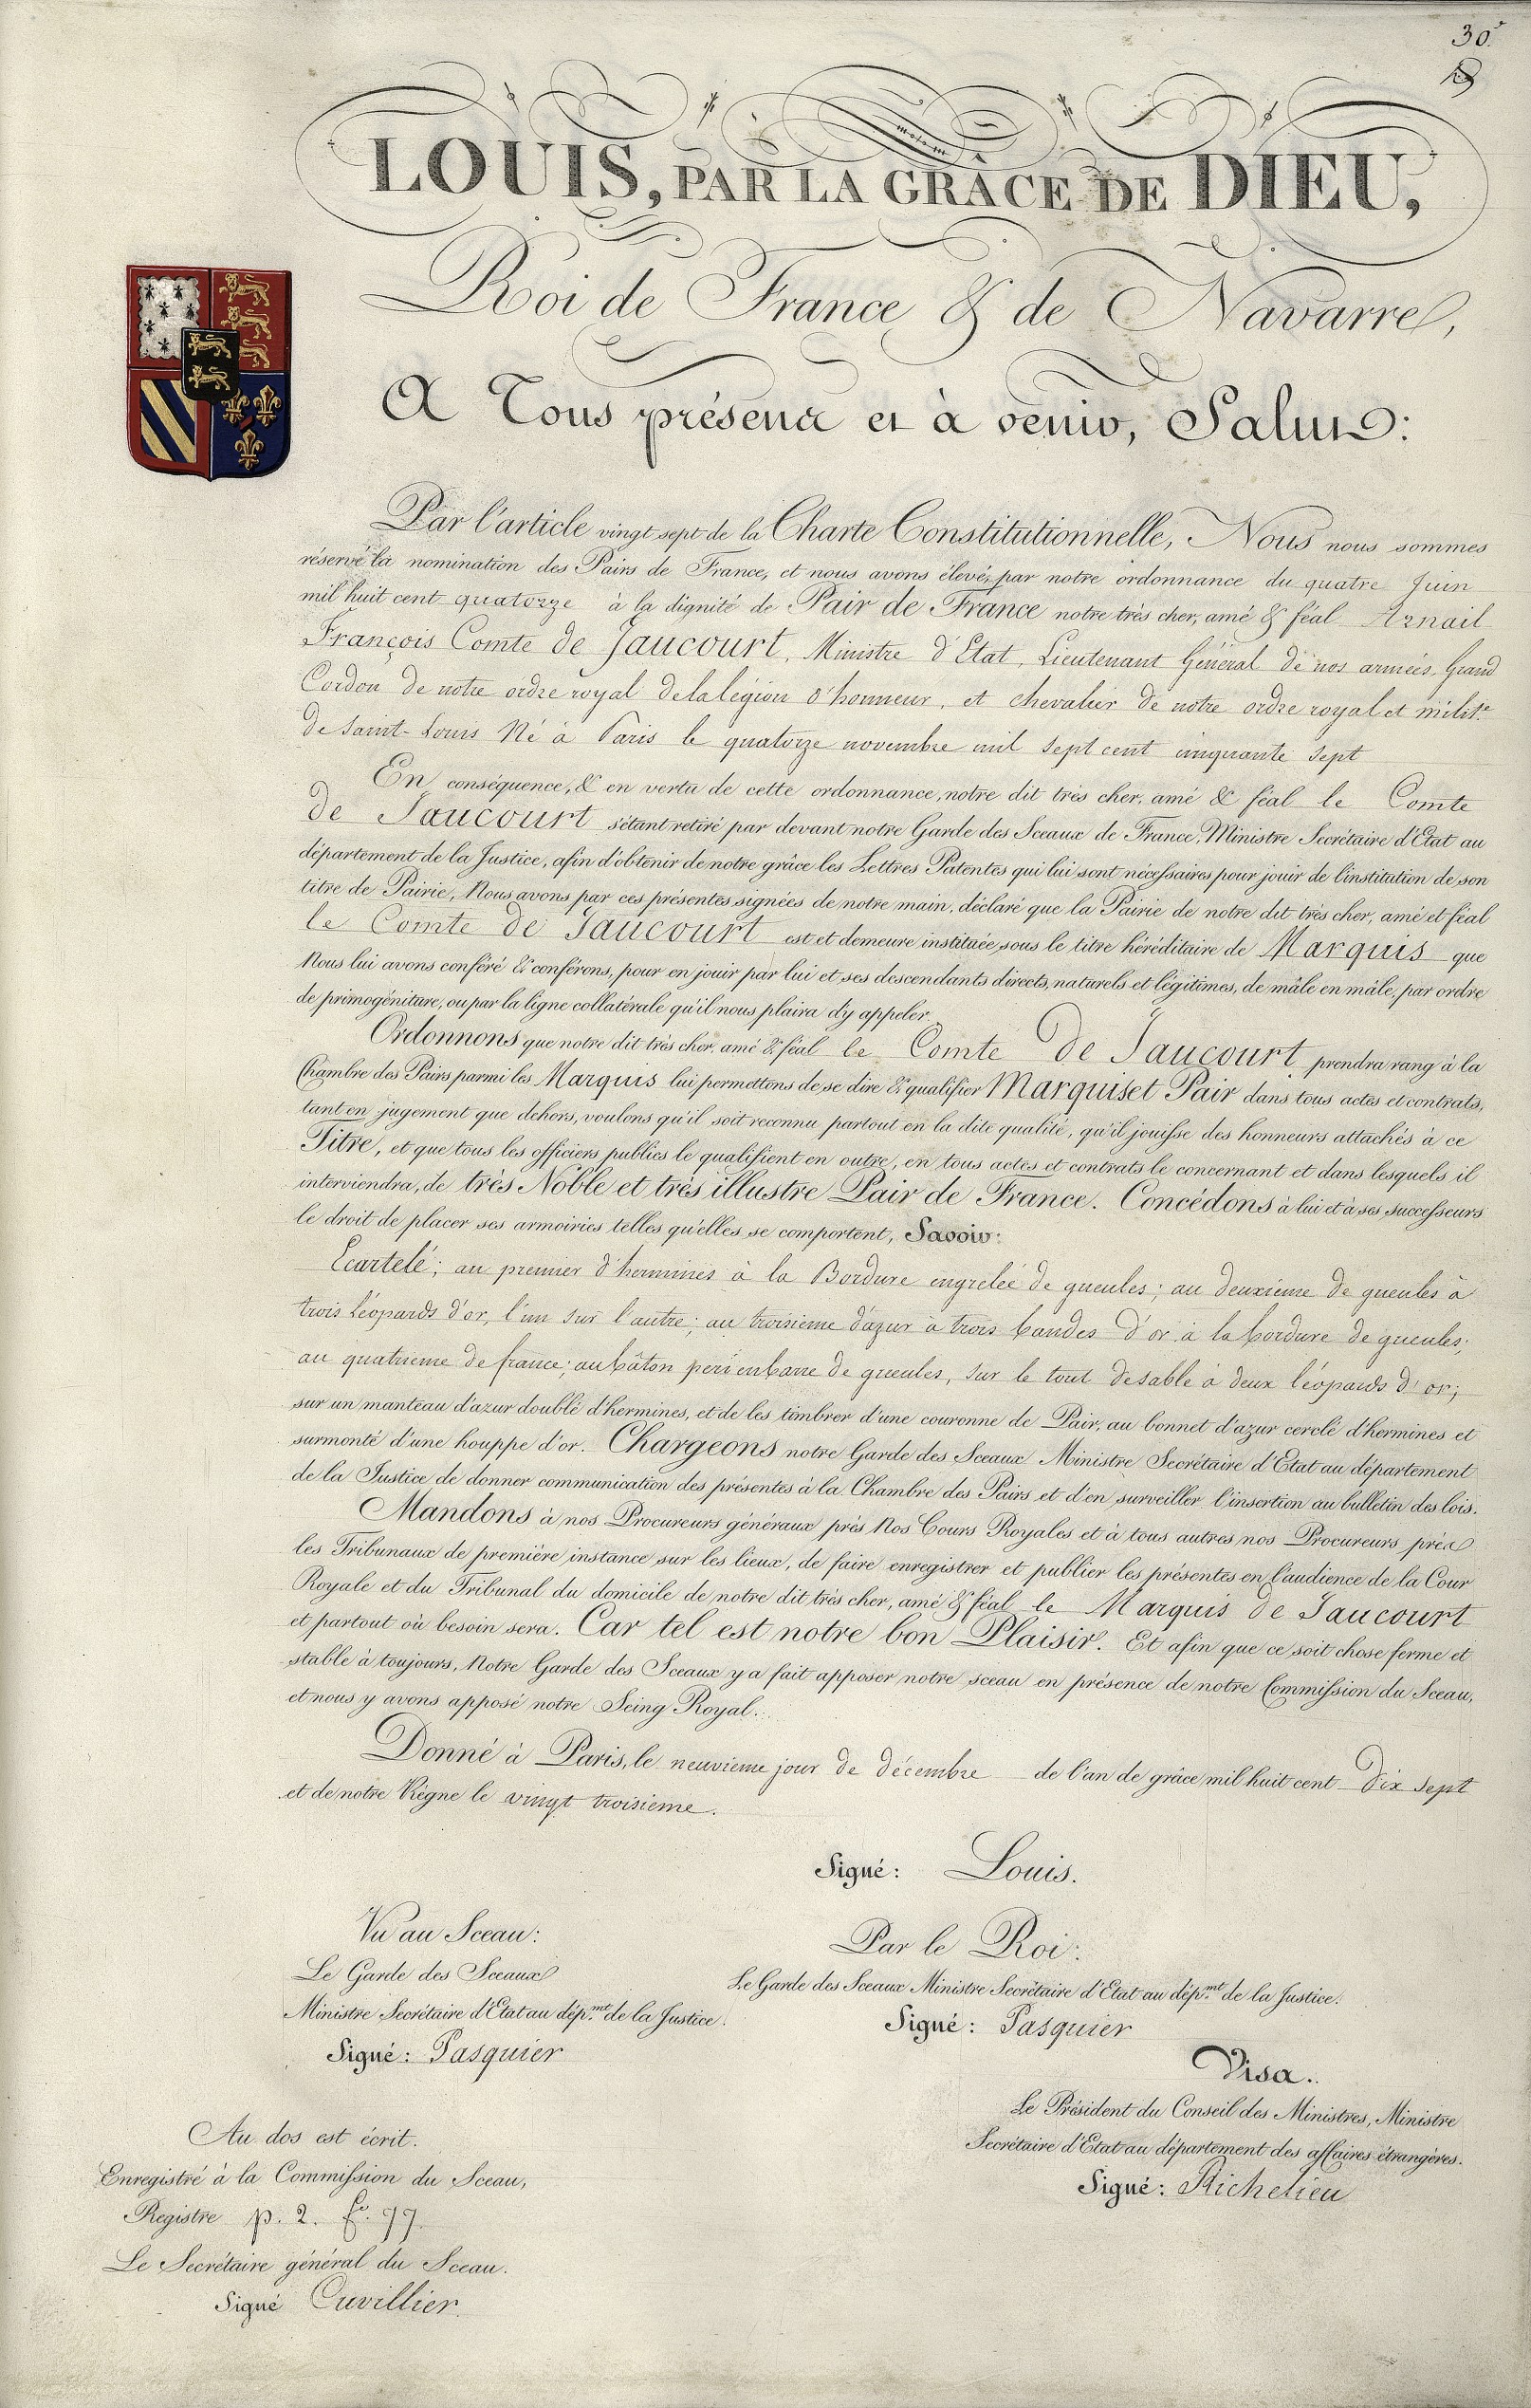 30.
LOUIS, PAR LA GRÂCE DE DIEU,
Roi de France & de Navarre,
A Tous présens et à venir, Salut:
Par l'article vingt sept de la Charte Constitutionnelle, Nous nous sommes
réservé la nomination des Pairs de France, et nous avons élevé, par notre ordonnance du quatre Juin
mil huit cent quatorze à la dignité de Pair de France notre très cher, amé & féal Arnail
François Comte de Jaucourt, Ministre d'Etat, Lieutenant Général de nos armées, Grand
Cordon de notre ordre royal de la légion d'honneur, et chevalier de notre ordre royal et milit.re
de Saint-Louis Né à Paris le quatorze novembre mil sept cent cinquante sept
En conséquence, & en vertu de cette ordonnance, notre dit très cher, amé & féal le Comte
de Jaucourt s'étant retiré par devant notre Garde des Sceaux de France, Ministre Secrétaire d'Etat au
département de la Justice, afin d'obtenir de notre grâce les Lettres Patentes qui lui sont nécessaires pour jouir de l'institution de son
titre de Pairie, Nous avons par ces présentes signées de notre main, déclaré que la Pairie de notre dit très cher, amé et féal
le Comte de Jaucourt est et demeure instituée sous le titre héréditaire de Marquis que
Nous lui avons conféré & conférons, pour en jouir par lui et ses descendants directs, naturels et légitimes, de mâle en mâle, par ordre
de primogéniture, ou par la ligne collatérale qu'il nous plaira d'y appeler.
Ordonnons que notre dit très cher, amé & féal le Comte de Jaucourt prendra rang à la
Chambre des Pairs parmi les Marquis lui permettons de se dire & qualifier Marquis et Pair dans tous actes et contrats,
tant en jugement que dehors, voulons qu'il soit reconnu partout en la dite qualité, qu'il jouisse des honneurs attachés à ce
Titre, et que tous les officiers publics le qualifient en outre, en tous actes et contrats le concernant et dans lesquels il
interviendra, de très Noble et très illustre Pair de France. Concédons à lui et à ses successeurs
le droit de placer ses armoiries telles qu'elles se comportent, Savoir:
Ecartelé; au premier d'hermines à la Bordure engrelée de gueules; au deuxième de gueules à
trois Léopards d'or, l'un sur l'autre; au troisieme d'azur à trois bandes d'or à la bordure de gueules;
au quatrieme de france; au bâton peri en barre de gueules, sur le tout de sable à deux léopards d'or;
sur un manteau d'azur doublé d'hermines, et de les timbrer d'une couronne de Pair, au bonnet d'azur cerclé d'hermines et
surmonté d'une houppe d'or. Chargeons notre Garde des Sceaux Ministre Secrétaire d'Etat au département
de la Justice de donner communication des présentes à la Chambre des Pairs et d'en surveiller l'insertion au bulletin des lois.
Mandons à nos Procureurs généraux près Nos Cours Royales et à tous autres nos Procureurs près
les Tribunaux de première instance sur les lieux, de faire enregistrer et publier les présentes en l'audience de la Cour
Royale et du Tribunal du domicile de notre dit très cher, amé & féal le Marquis de Jaucourt
et partout où besoin sera. Car tel est notre bon Plaisir. Et afin que ce soit chose ferme et
stable à toujours, Notre Garde des Sceaux y a fait apposer notre sceau en présence de notre Commission du Sceau,
et nous y avons apposé notre Seing Royal.
Donné à Paris, le neuvieme jour de décembre de l'an de grâce mil huit cent dix sept
et de notre Règne le vingt troisieme.
Signé: Louis.
Vu au Sceau:
Le Garde des Sceaux
Ministre Secrétaire d'Etat au dép.mt de la Justice.
Signé: Pasquier
Par le Roi:
Le Garde des Sceaux Ministre Secrétaire d'Etat au dép.mt de la Justice.
Signé: Pasquier
Visa.
Le Président du Conseil des Ministres, Ministre
Secrétaire d'Etat au département des affaires étrangères.
Signé: Richelieu
Au dos est écrit.
Enregistré à la Commission du Sceau,
Registre p. 2. f.o 77.
Le Secrétaire général du Sceau.
Signé Cuvillier.